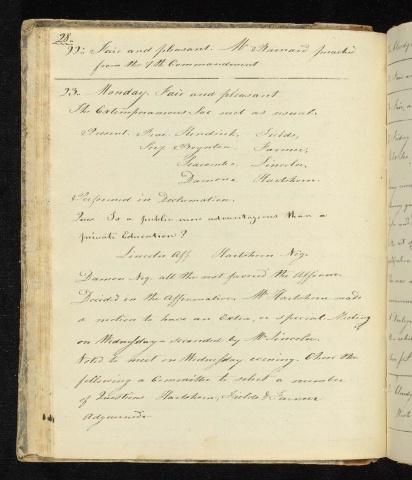 28
22. Fair and pleasant. Mr Barnard preached
from the 7th Commandment
23. Monday. Fair and pleasant
The Extemporaneous Soc met as usual.
Present. Kendrick, Fields,
Boynton, Farmer,
Lincoln,
Damon & Hartshorn.
Performed in Declamation.
Ques Is a public more advantageous than a
private Education?
Lincoln Aff Hartshorn Neg.
Damon Neg. all the rest favored the Affirm.
Decided in the Affirmative. Mr Hartshorn made
a motion to have an Extra, or special Meeting
on Wednesday - seconded by Mr Lincoln.
Voted to meet on Wednesday evening. Chose the
following a Committee to select a number
of Questions Hartshorn, Fields & Farmer
Adjourned